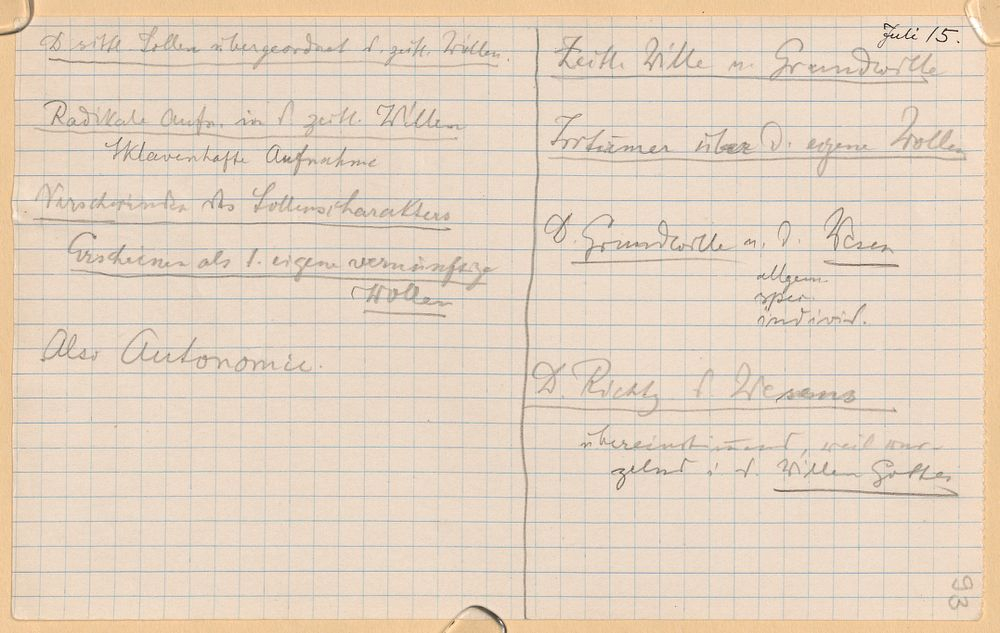 D. sittl. Sollen übergeordnet d. zeitl. Wollen.
Radikale Aufn. in d. zeitl. Willen
Sklavenhafte Aufnahme
Verschwinden des Sollenscharakters
Erscheinen als d. eigene vernünftige
Wollen
Also Autonomie.
Juli 15.
Zeitl. Wille u. Grundwille
Irrtümer über d. eigene Wollen
D. Grundwille u. d. Wesen
allgem.
spez.
individ.
D. Richtg d. Wesens
übereinstimmend, weil wur-
zelnd i. d. Willen Gottes
93